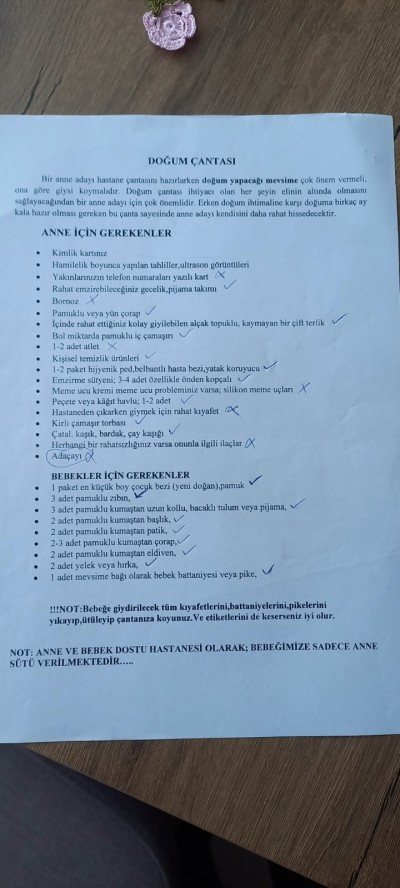 DOĞUM ÇANTASI
Bir anne adayı hastane çantasını hazırlarken doğum yapacağı mevsime çok önem vermeli,
ona göre giysi koymalıdır. Doğum çantası ihtiyacı olan her şeyin elinin altında olmasını
sağlayacağından bir anne adayı için çok önemlidir. Erken doğum ihtimaline karşı doğuma birkaç ay
kala hazır olması gereken bu çanta sayesinde anne adayı kendisini daha rahat hissedecektir.
ANNE İÇİN GEREKENLER
• Kimlik kartınız
• Hamilelik boyunca yapılan tahliller,ultrason görüntüleri
• Yakınlarınızın telefon numaraları yazılı kart
• Rahat emzirebileceğiniz gecelik,pijama takımı
• Bornoz
• Pamuklu veya yün çorap
• İçinde rahat ettiğiniz kolay giyilebilen alçak topuklu, kaymayan bir çift terlik
• Bol miktarda pamuklu iç çamaşırı
• 1-2 adet atlet
• Kişisel temizlik ürünleri
• 1-2 paket hijyenik ped,belbantlı hasta bezi,yatak koruyucu
• Emzirme sütyeni; 3-4 adet özellikle önden kopçalı
• Meme ucu kremi meme ucu probleminiz varsa; silikon meme uçları
• Peçete veya kâğıt havlu; 1-2 adet
• Hastaneden çıkarken giymek için rahat kıyafet
• Kirli çamaşır torbası
• Çatal, kaşık, bardak, çay kaşığı
• Herhangi bir rahatsızlığınız varsa onunla ilgili ilaçlar
• Adaçayı
BEBEKLER İÇİN GEREKENLER
• 1 paket en küçük boy çocuk bezi (yeni doğan),pamuk
• 3 adet pamuklu zıbın,
• 3 adet pamuklu kumaştan uzun kollu, bacaklı tulum veya pijama,
• 2 adet pamuklu kumaştan başlık,
• 2 adet pamuklu kumaştan patik,
• 2-3 adet pamuklu kumaştan çorap,
• 2 adet pamuklu kumaştan eldiven,
• 2 adet yelek veya hırka,
• 1 adet mevsime bağı olarak bebek battaniyesi veya pike,
!!!NOT:Bebeğe giydirilecek tüm kıyafetlerini,battaniyelerini,pikelerini
yıkayıp,ütüleyip çantanıza koyunuz.Ve etiketlerini de keserseniz iyi olur.
NOT: ANNE VE BEBEK DOSTU HASTANESİ OLARAK; BEBEĞİMİZE SADECE ANNE
SÜTÜ VERİLMEKTEDİR.....